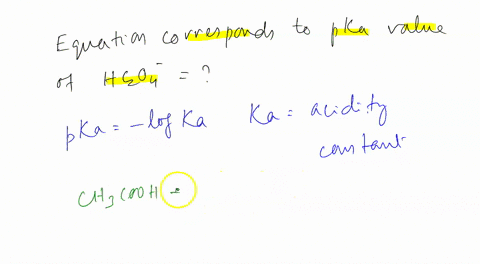 Equation corresponds to pKa value
of HSO4⁻ = ?
pKa = -log Ka Ka = acidity
constant
CH3COOH